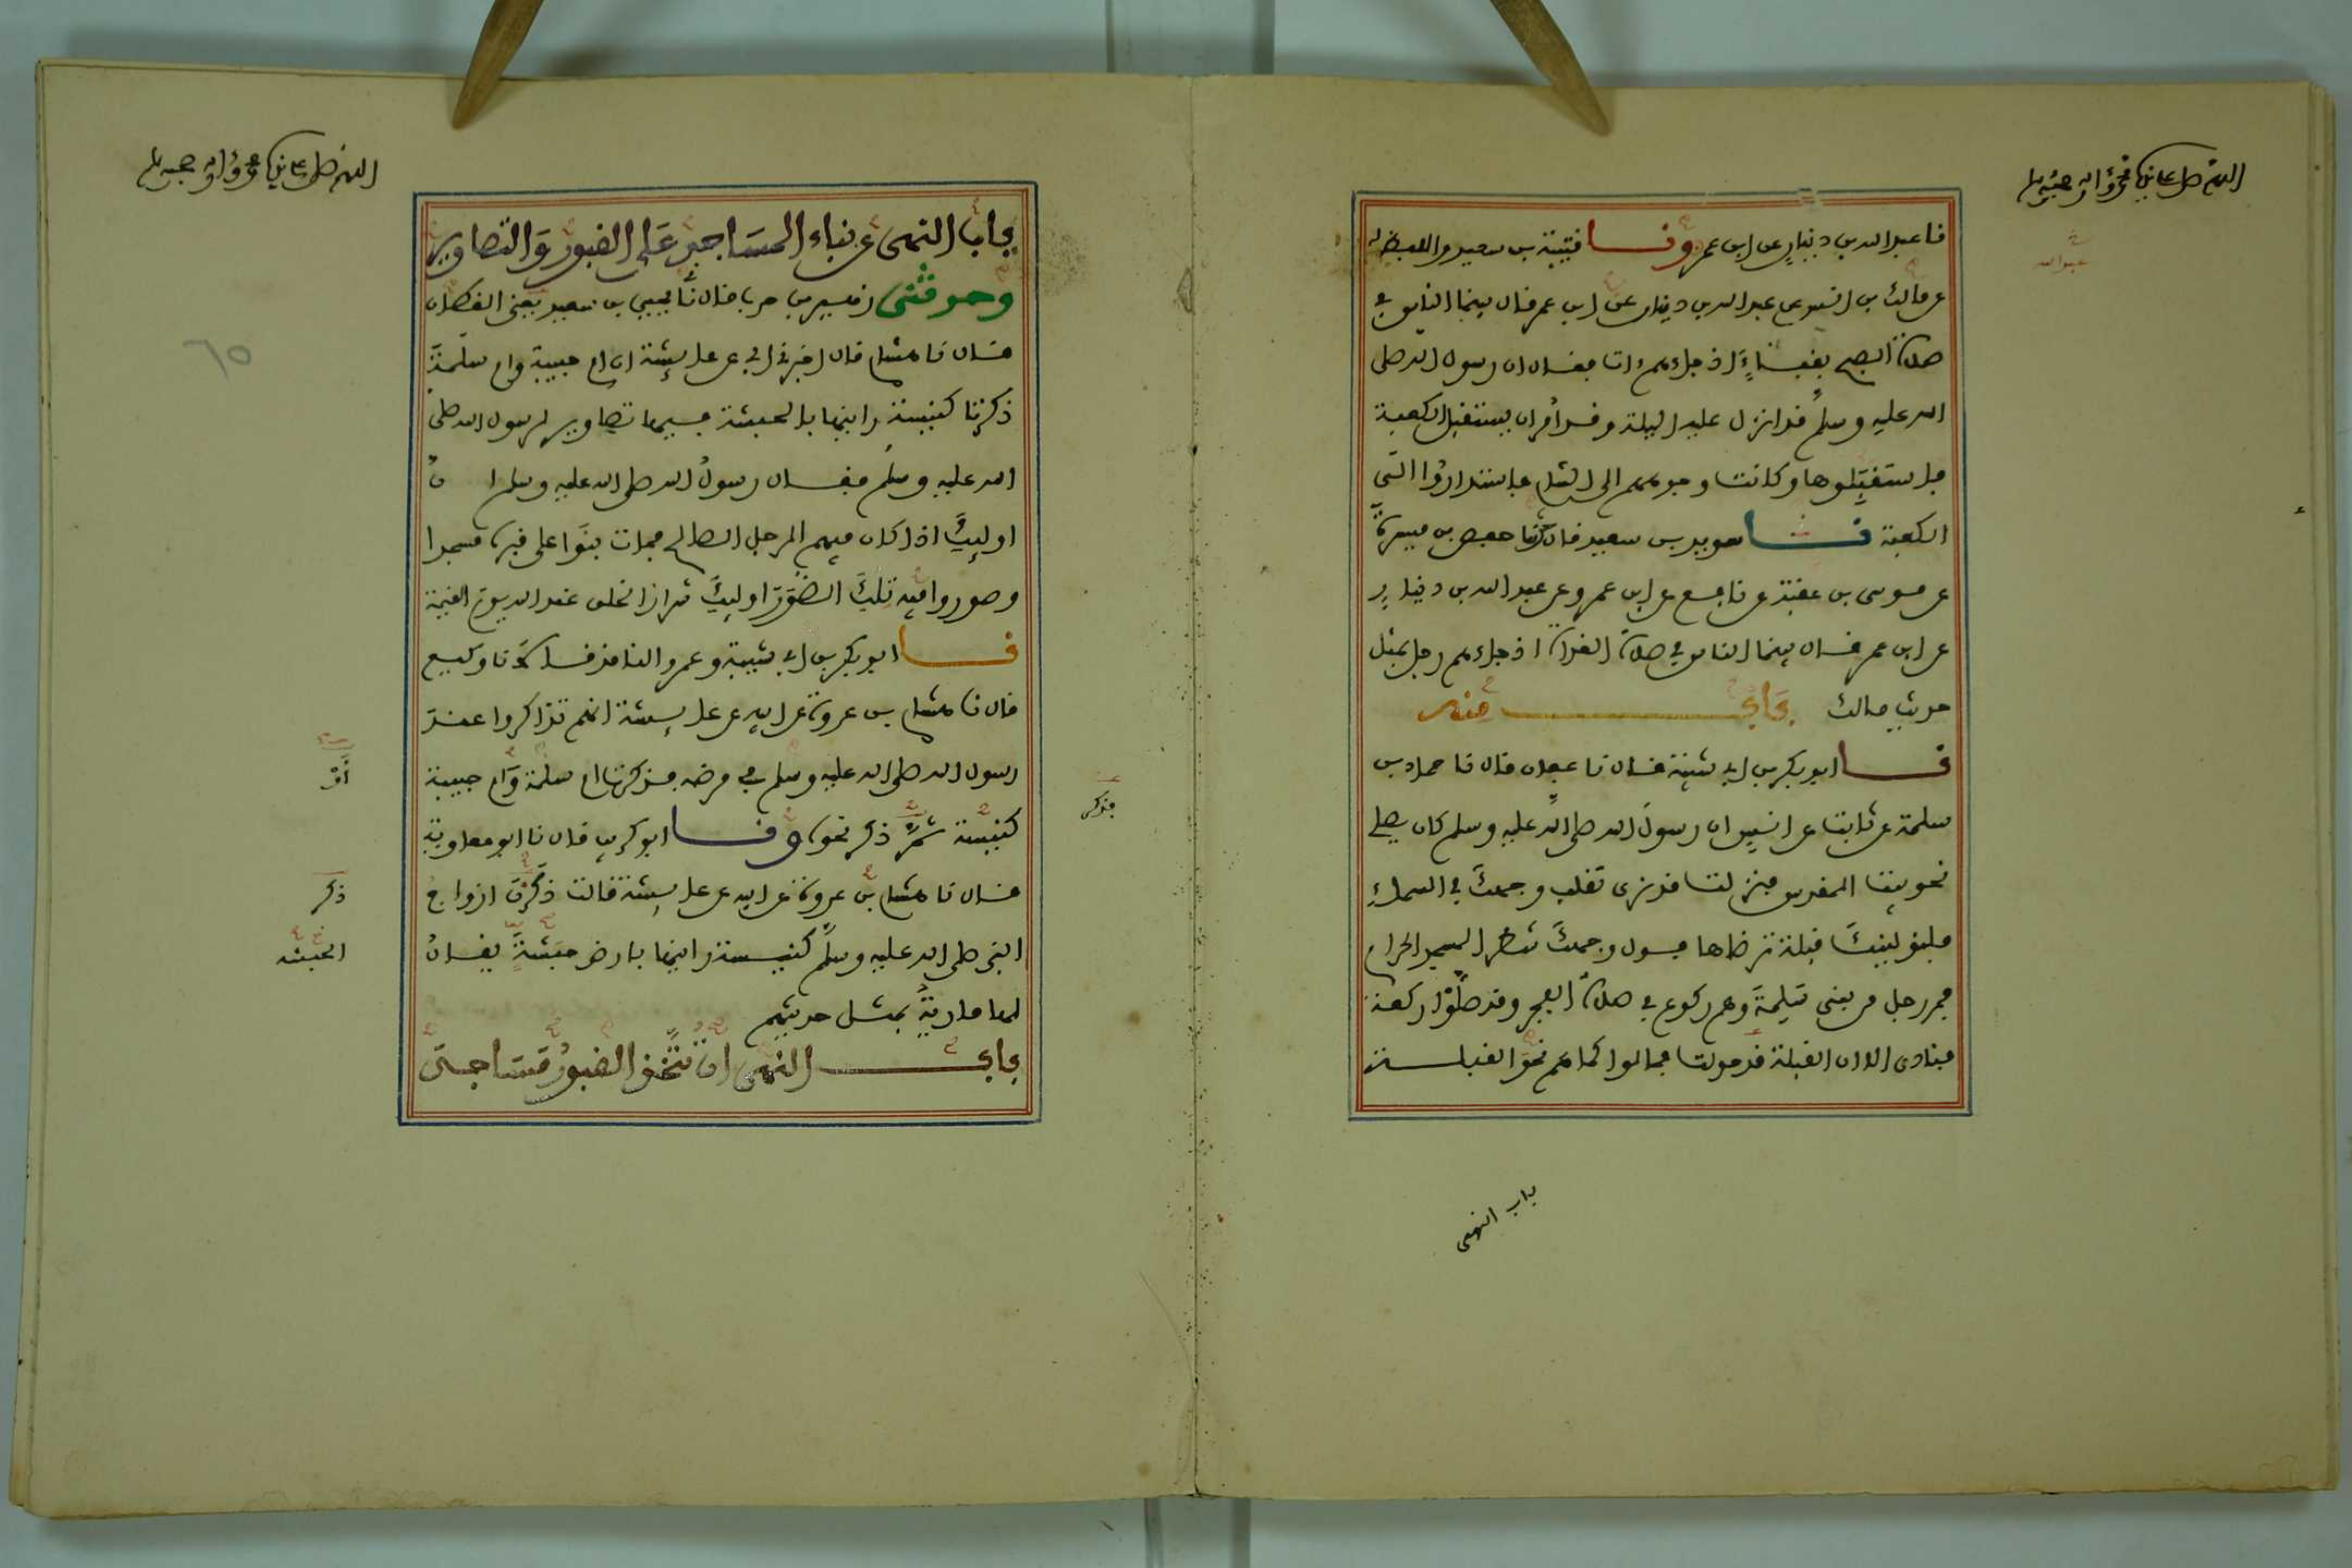 اللهم صل على نبيك محمد وآله وصحبه وسلم
نا عبد الله بن دينار عن ابن عمر ونا قتيبة بن سعيد واللفظ له
عبد الله
عن مالك بن انس عن عبد الله بن دينار عن ابن عمر قال بينما الناس في
صلاة الصبح بقباء اذ جاءهم ات فقال ان رسول الله صلى
الله عليه وسلم قد انزل عليه الليلة وقد امر ان يستقبل الكعبة
فاستقبلوها وكانت وجوههم الى الشام فاستداروا الى
الكعبة نا سويد بن سعيد قال نا حفص بن ميسرة
عن موسى بن عقبة عن نافع عن ابن عمر وعن عبد الله بن دينار
عن ابن عمر قال بينما الناس في صلاة الغداة اذ جاءهم رجل بمثل
حديث مالك باب منه
نا ابو بكر بن ابي شيبة قال نا عفان قال نا حماد بن
سلمة عن ثابت عن انس ان رسول الله صلى الله عليه وسلم كان يصلي
نحو بيت المقدس فنزلت قد نرى تقلب وجهك في السماء
فلنولينك قبلة ترضاها فول وجهك شطر المسجد الحرام
فمر رجل من بني سلمة وهم ركوع في صلاة الفجر وقد صلوا ركعة
فنادى الا ان القبلة قد حولت فمالوا كما هم نحو القبلة
باب النهى
اللهم صل على نبيك محمد وآله وصحبه وسلم
باب النهى عن بناء المساجد على القبور والتصاوير
وحدثني زهير بن حرب قال نا يحيى بن سعيد يعني القطان
٦٥
قال نا هشام قال اخبرني ابي عن عايشة ان ام حبيبة وام سلمة
ذكرتا كنيسة راينها بالحبشة فيها تصاوير لرسول الله صلى
الله عليه وسلم فقال رسول الله صلى الله عليه وسلم ان
اوليك اذا كان فيهم الرجل الصالح فمات بنوا على قبره مسجدا
وصوروا فيه تلك الصور اوليك شرار الخلق عند الله يوم القيمة
نا ابو بكر بن ابي شيبة وعمرو الناقد قالا نا وكيع
قال نا هشام بن عروة عن ابيه عن عايشة انهم تذاكروا عند
رسول الله صلى الله عليه وسلم في مرضه فذكرت ام سلمة وام حبيبة
أو
فذكر
كنيسة ثم ذكر نحوه ونا ابو كريب قال نا ابو معاوية
قال نا هشام بن عروة عن ابيه عن عايشة قالت ذكرن ازواج
ذكر
النبي صلى الله عليه وسلم كنيسة راينها بارض حبشة يقال
الحبشة
لها مارية بمثل حديثهم
باب النهى ان تتخذ القبور مساجد